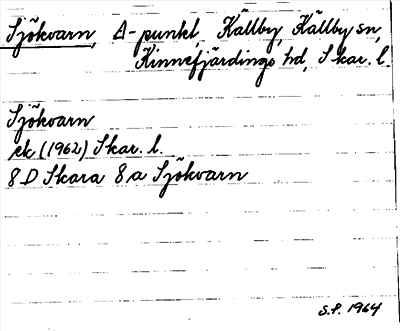 Sjökvarn, Δ-punkt, Källby, Källby sn,
Kinnefjärdings hd, Skar. l.
Sjökvarn
ek (1962) Skar. l.
8 D Skara 8 a Sjökvarn
S.F. 1964